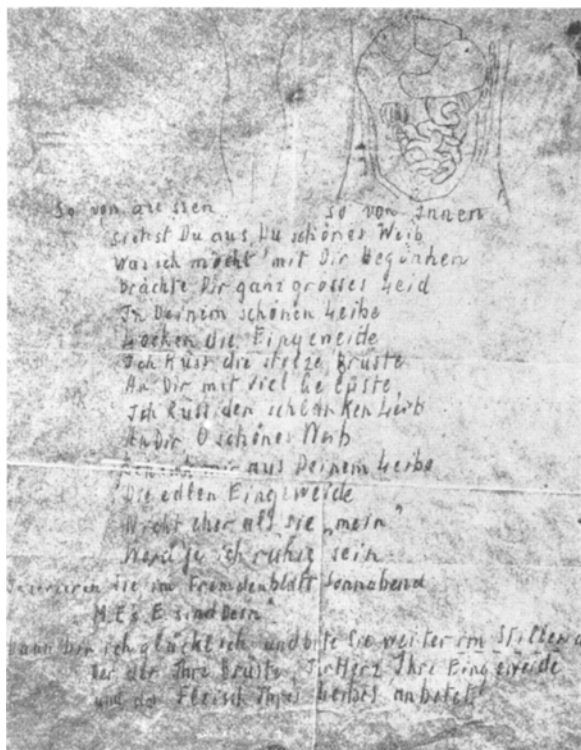 so von aussen so von Innen
siehst Du aus Du schönes Weib
Was ich möcht mit Dir begünken
brächte Dir ganz grosses Leid
In Deinem schönen Leibe
Locken die Eingeweide
Ich Küss die stolze Brüste
An Dir mit viel Gelüste
Ich Küss den schlanken Leib
An Dir O schönes Weib
mir aus Deinem Leibe
Die edlen Eingeweide
Nicht eher als sie "mein"
Werd je ich ruhig sein
Inserieren sie im Fremdenblatt Sonnabend
M.E's E sind Dein"
Dann bin ich glücklich und bite Sie weiter im Stillen
Der der Ihre Brüste, Ihr Herz Ihre Eingeweide
und das Fleisch Ihres Leibes anbetet